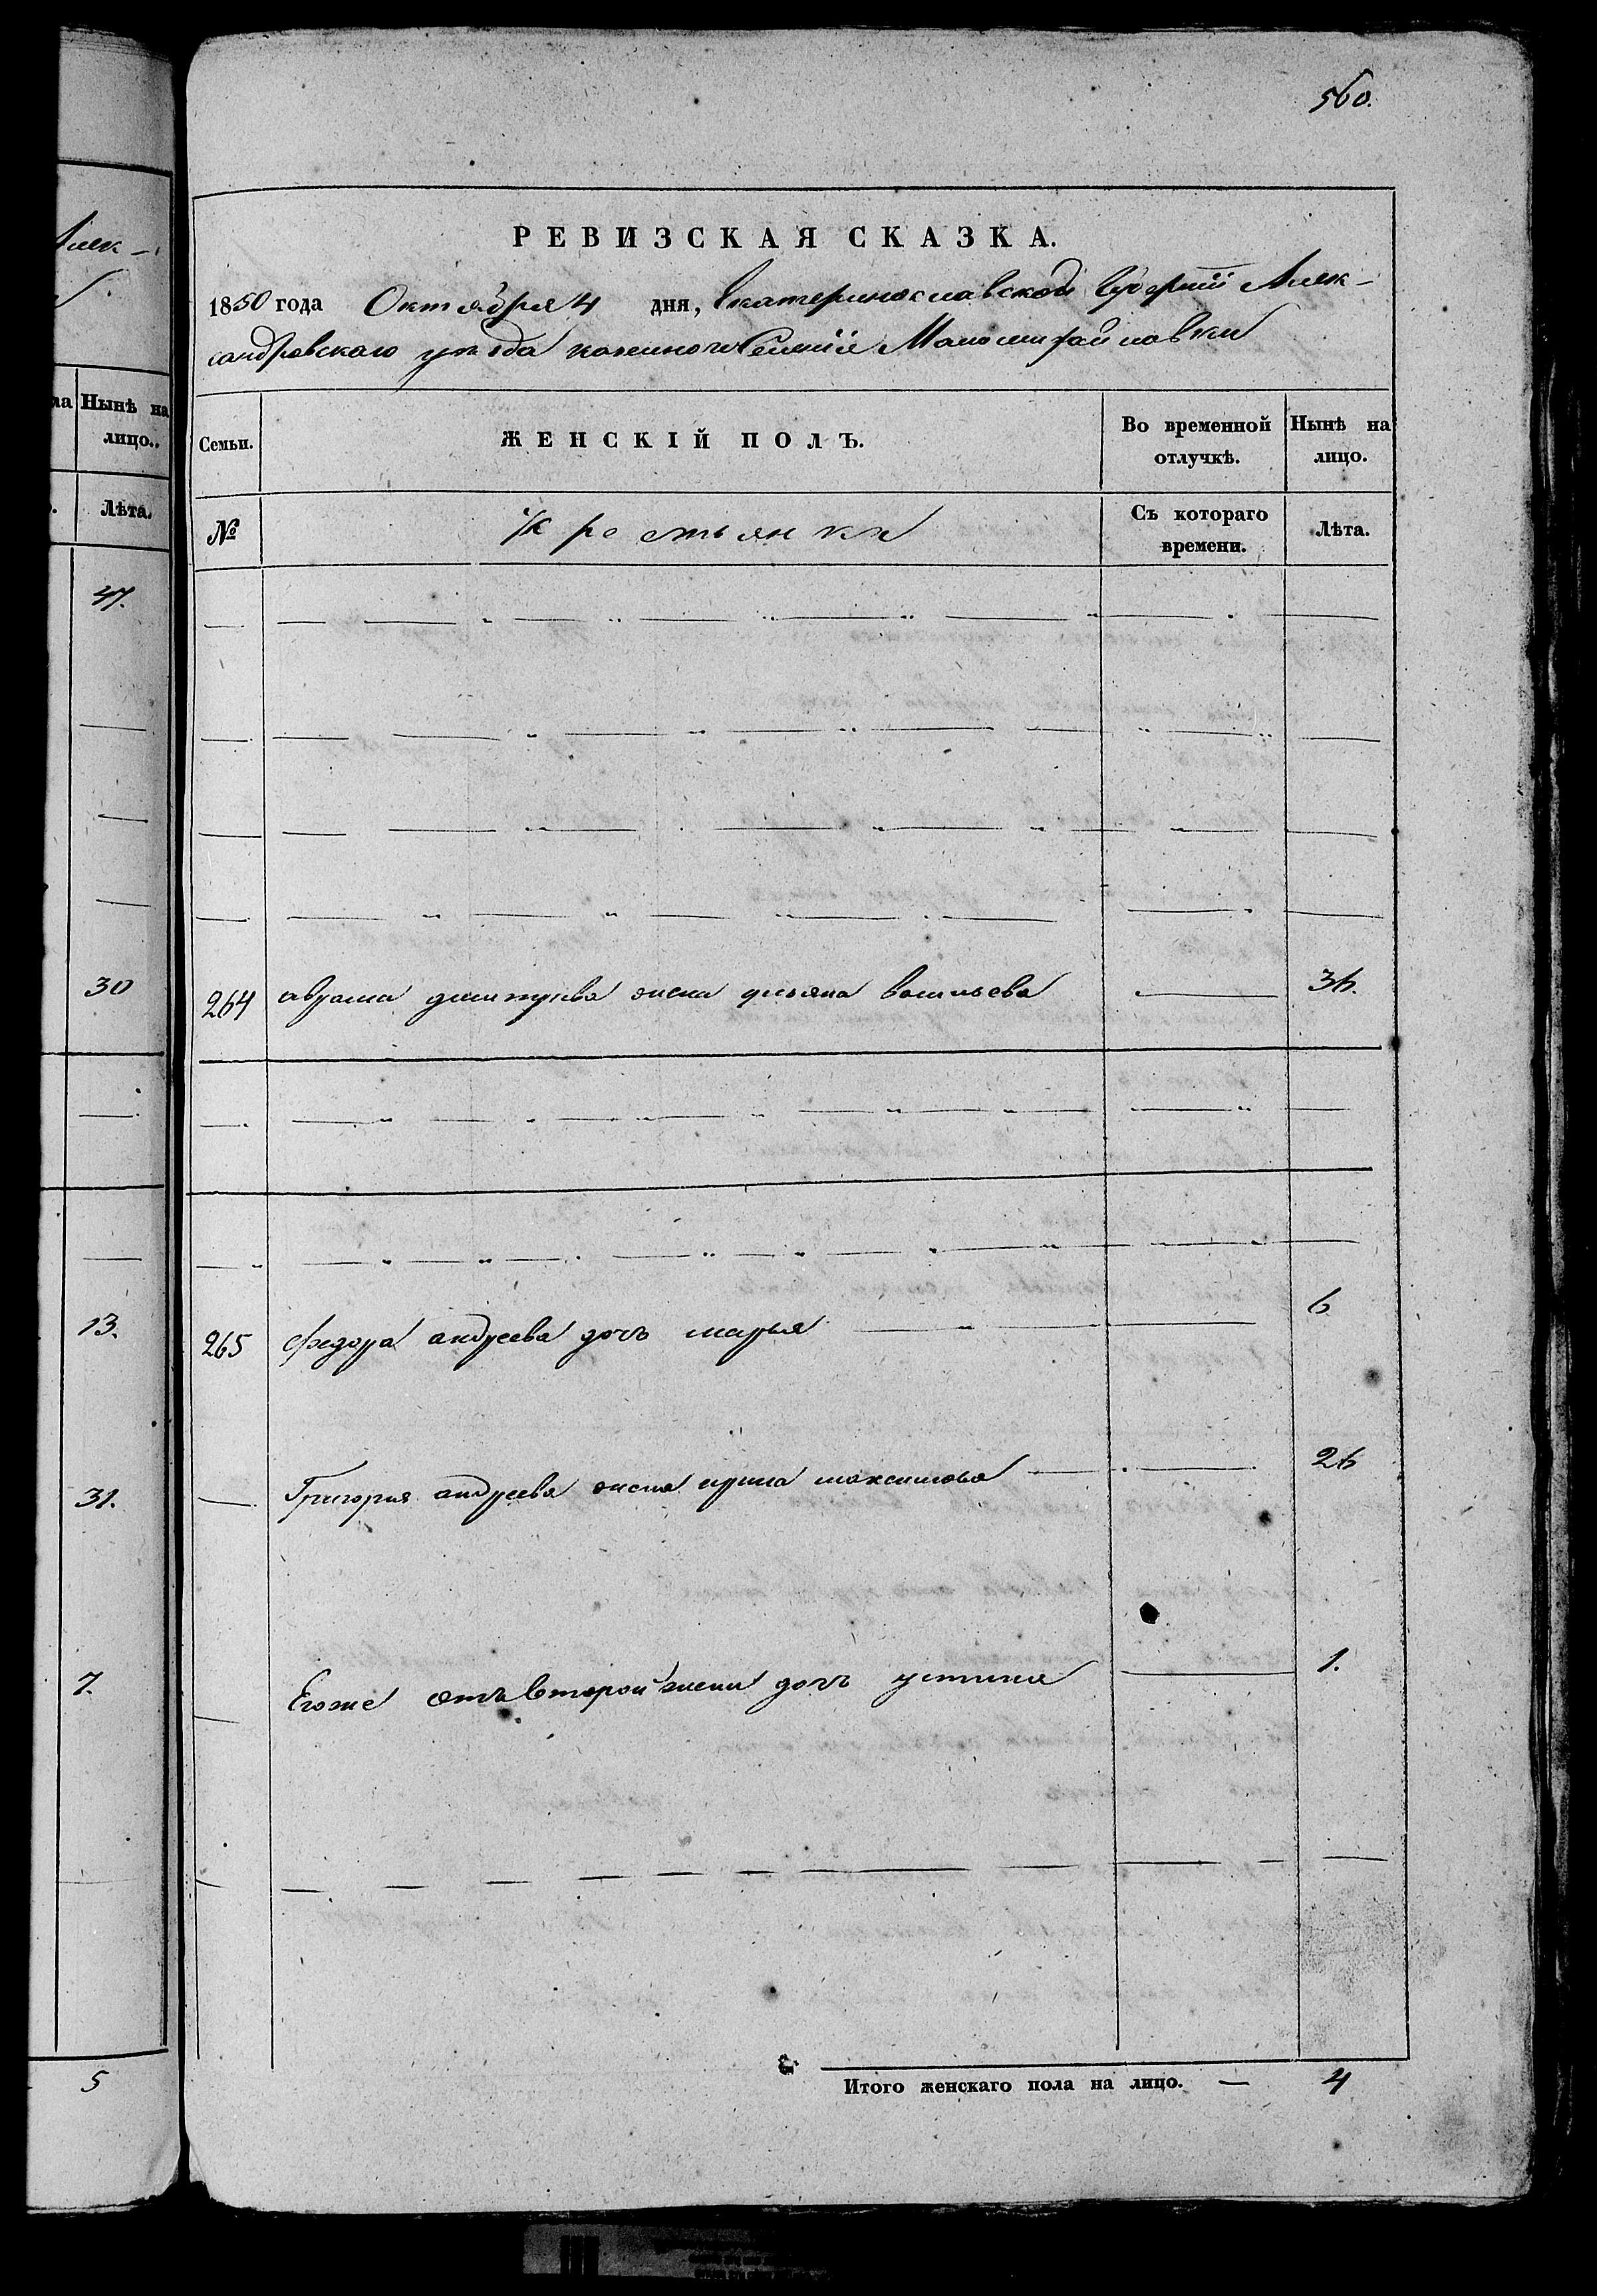 Алек-
на Нынѣ на
лицо.
Лѣта.
47.
30
13.
31.
7.
5
560.
РЕВИЗСКАЯ СКАЗКА.
1850 года Октября 4 дня, Екатеринославской Губернии Алек-
сандровскаго уѣзда казеннаго Селенія Маломихайловки
Семьи. ЖЕНСКІЙ ПОЛЪ. Во временной отлучкѣ. Нынѣ на лицо.
№ Крестьянки Съ котораго времени. Лѣта.
264 аврама дмитриева жена ульяна васильева — 36.
265 федора андреева дочь марья — 6
Григория андреева жена ирина максимова — 26
Егоже отъ второй жены дочь устина — 1.
Итого женскаго пола на лицо. — 4